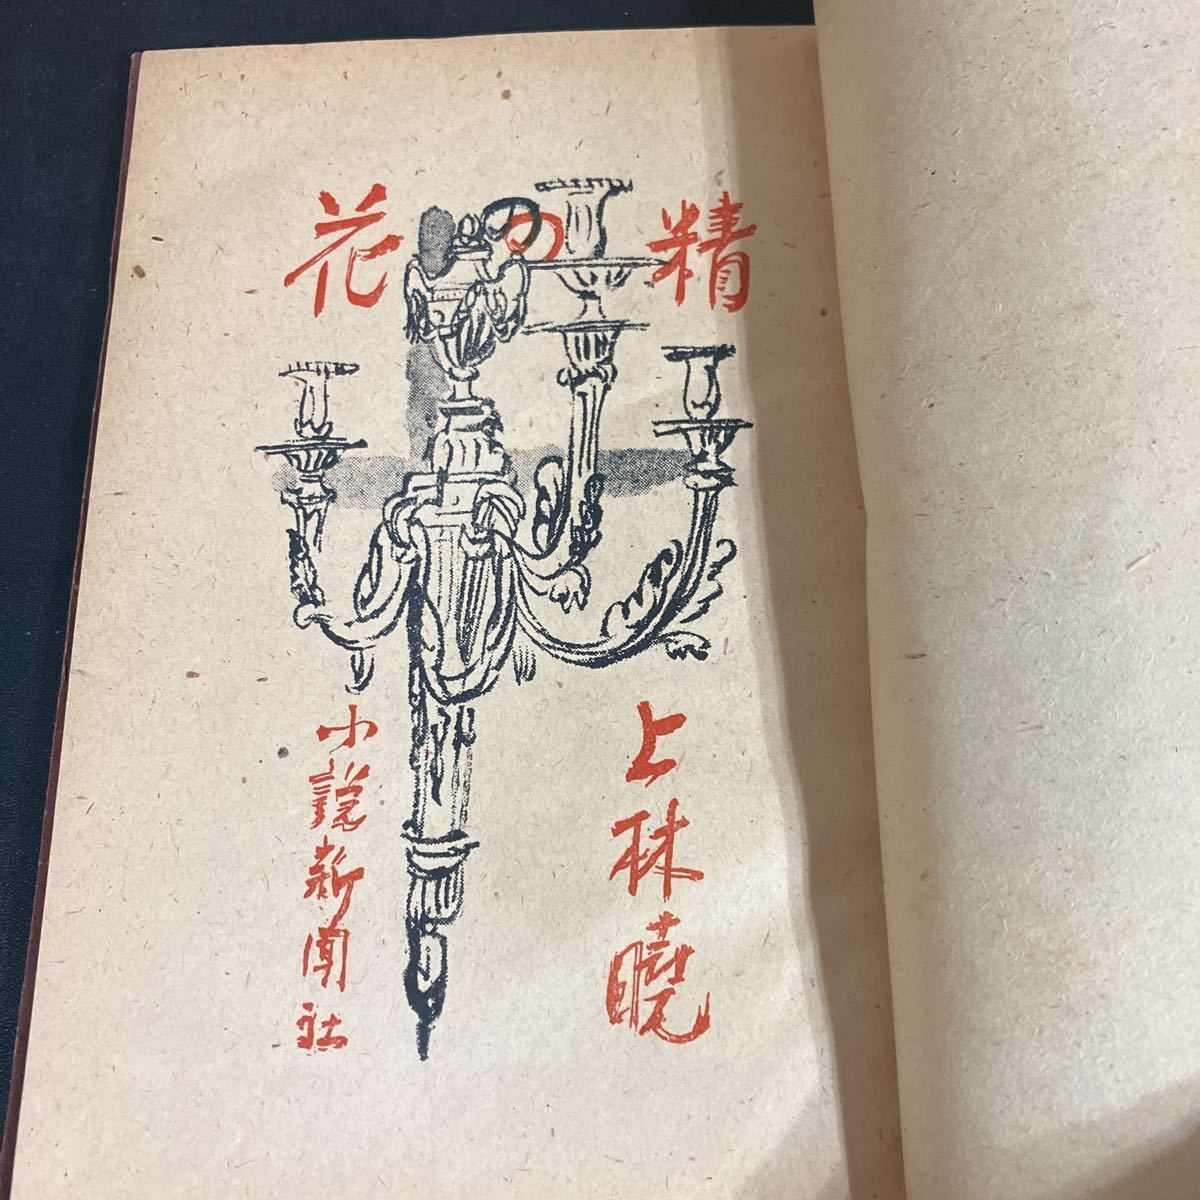 花の精
上林曉
小説新聞社